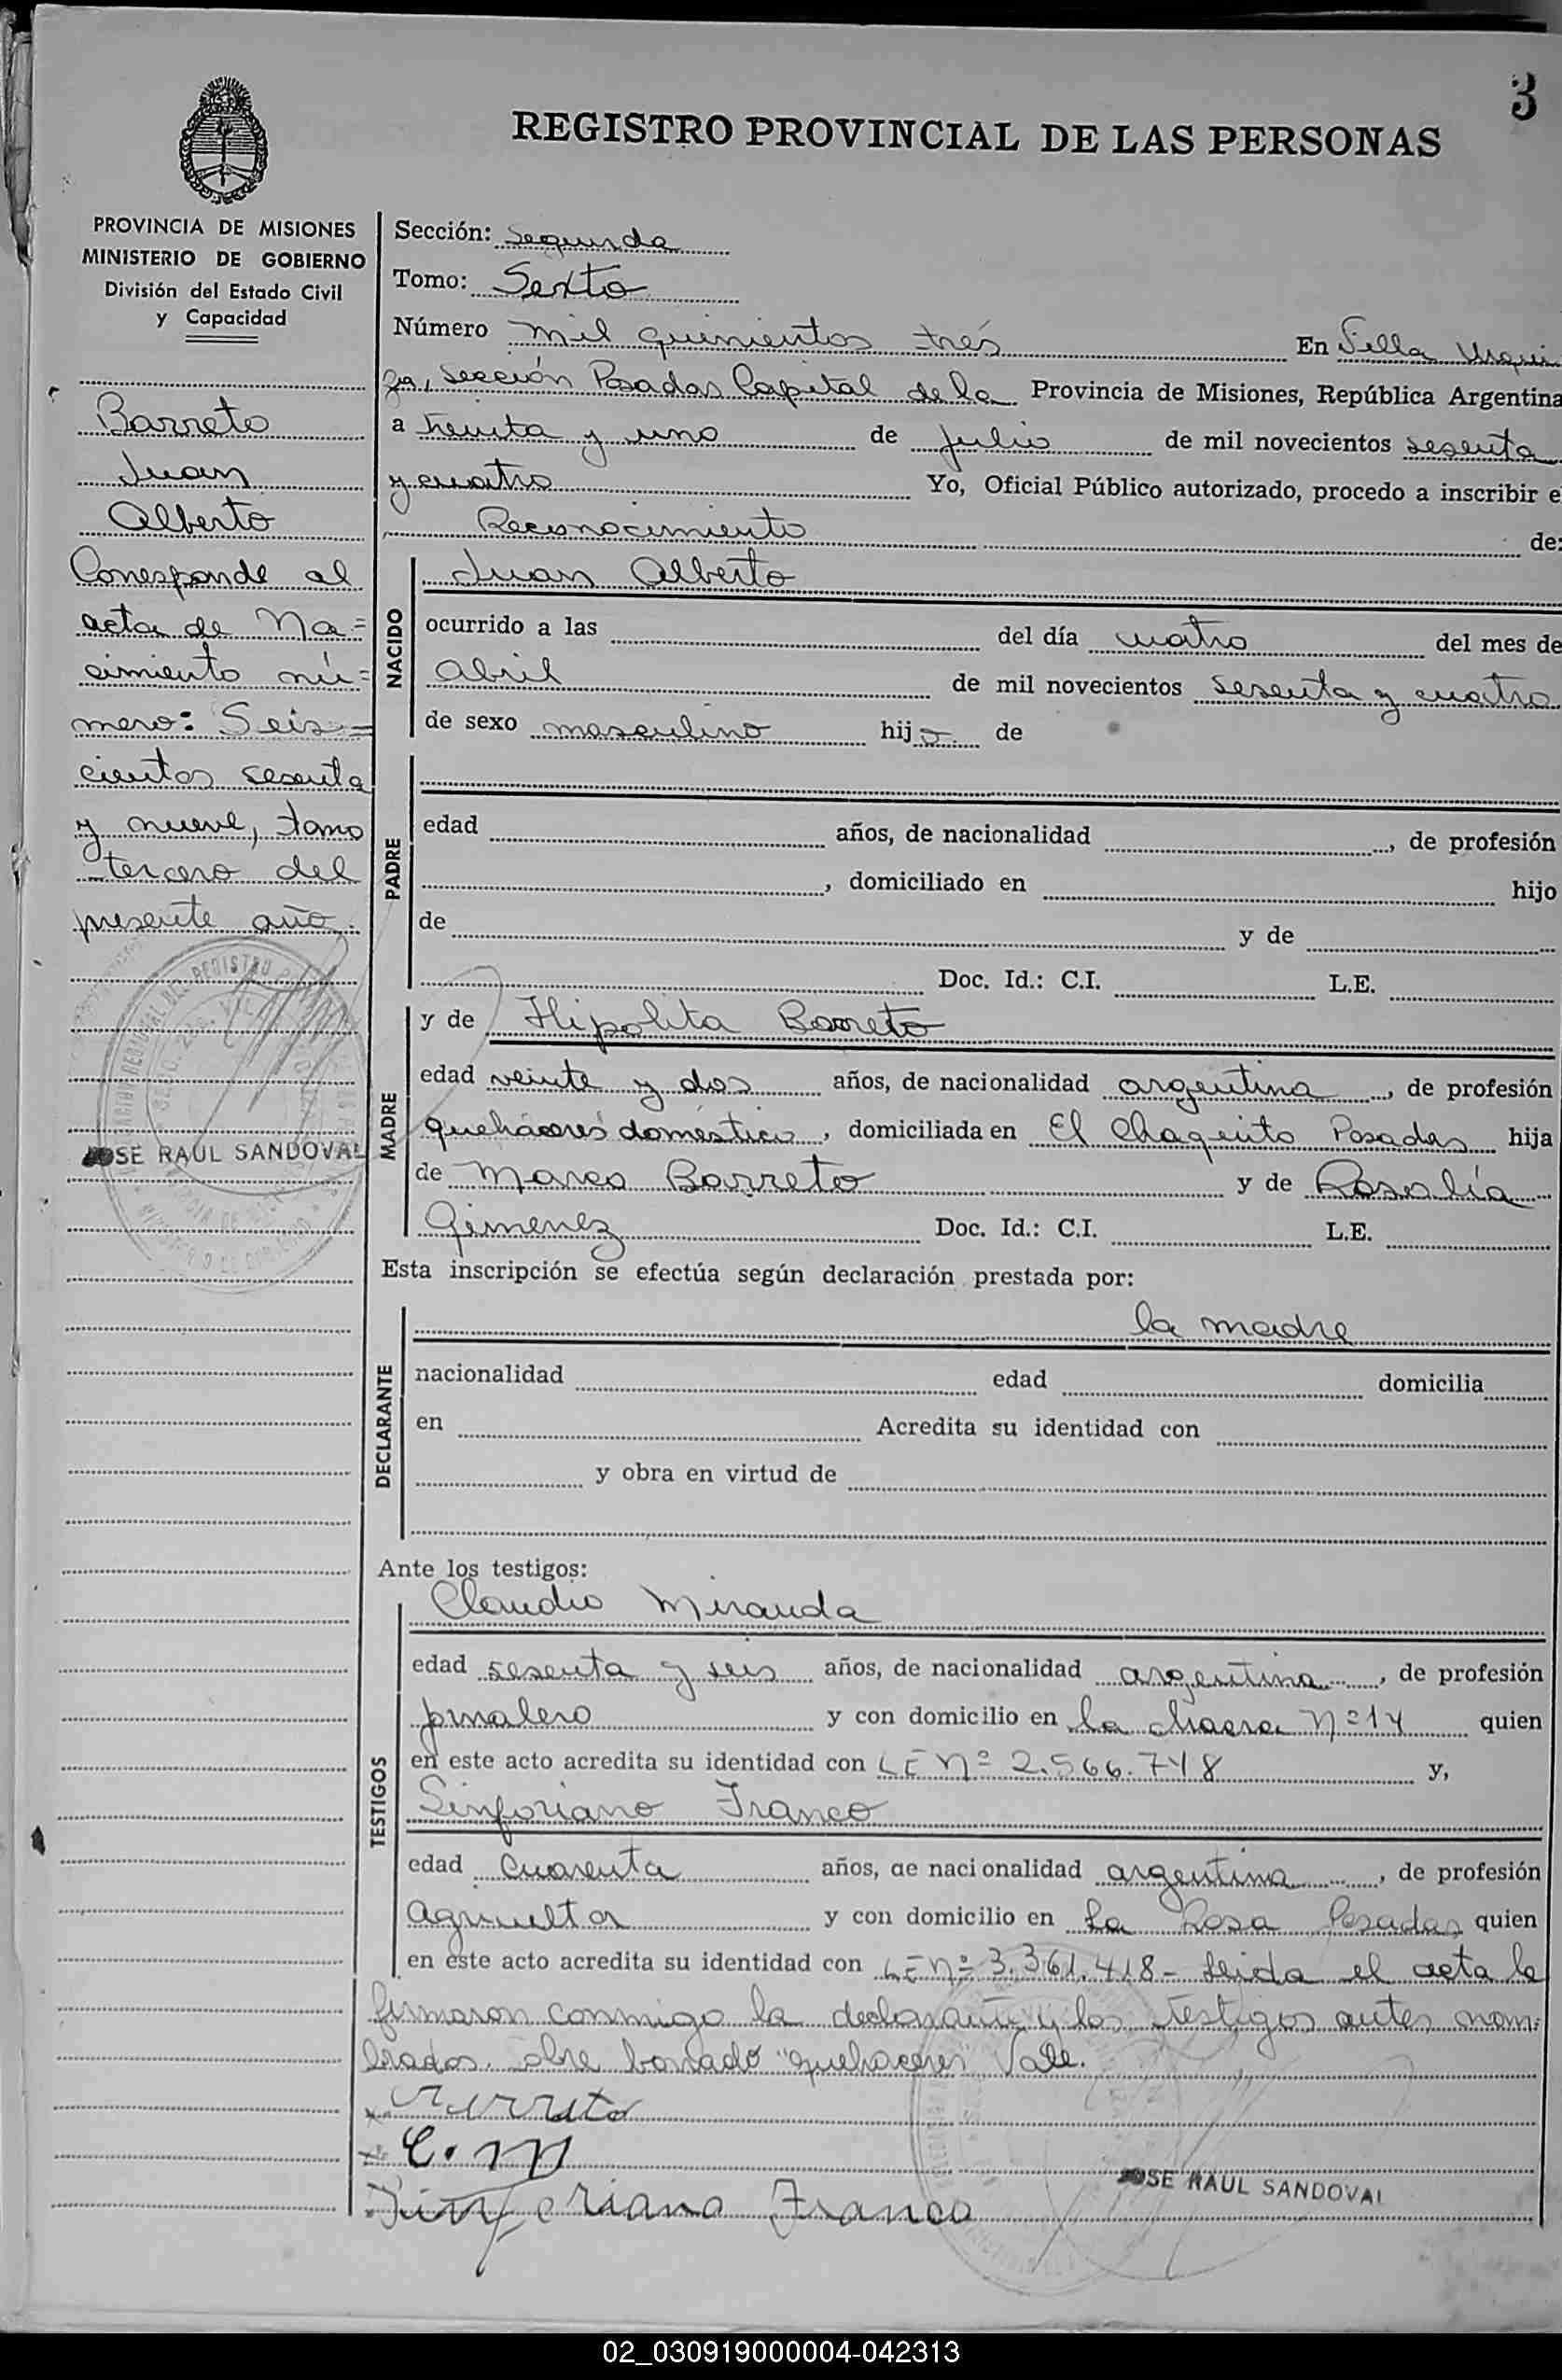 3
REGISTRO PROVINCIAL DE LAS PERSONAS
PROVINCIA DE MISIONES
MINISTERIO DE GOBIERNO
División del Estado Civil
y Capacidad
Barreto
Juan
Alberto
Corresponde al
acta de Na=
cimiento nú=
mero: Seis=
cientos sesenta
y nueve, tomo
tercero del
presente año.
JOSE RAUL SANDOVAL
Sección: Segunda
Tomo: Sexto
Número mil quinientos tres En Villa Urqui
za, Sección Posadas Capital de la Provincia de Misiones, República Argentina
a treinta y uno de julio de mil novecientos sesenta
y cuatro Yo, Oficial Público autorizado, procedo a inscribir e
Reconocimiento de:
NACIDO
Juan Alberto
ocurrido a las del día cuatro del mes de
Abril de mil novecientos sesenta y cuatro
de sexo masculino hijo de
PADRE
edad años, de nacionalidad , de profesión
, domiciliado en hijo
de y de
Doc. Id.: C.I. L.E.
MADRE
y de Hipolita Barreto
edad veinte y dos años, de nacionalidad argentina, de profesión
quehaceres domésticos, domiciliada en El Chaquito Posadas hija
de Marco Barreto y de Rosalía
Gimenez Doc. Id.: C.I. L.E.
Esta inscripción se efectúa según declaración prestada por:
DECLARANTE
la madre
nacionalidad edad domicilia
en Acredita su identidad con
y obra en virtud de
Ante los testigos:
TESTIGOS
Claudio Miranda
edad sesenta y seis años, de nacionalidad argentina, de profesión
jornalero y con domicilio en la chacra Nº 14 quien
en este acto acredita su identidad con LE Nº 2.566.748 y,
Sinforiano Franco
edad cuarenta años, de nacionalidad argentina, de profesión
agricultor y con domicilio en La Rosa Posadas quien
en este acto acredita su identidad con LE Nº 3.361.418- Leida el acta la
firmaron conmigo la declarante y los testigos antes nom=
brados. Sobre borrado "quehaceres" Vale.
Barreto
C. M
Sinforiano Franco
JOSE RAUL SANDOVAL
02_030919000004-042313